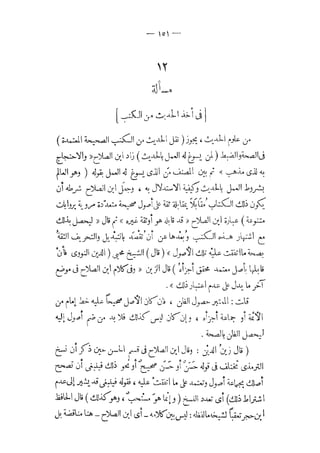 — ١٥١ —
١٢
مسألة
[ فى أخذ الحديث من الكتب ]
من علوم الحديث ، يجوز ( نقل الحديث من الكتب الصحيحة المعتمدة )
فى الصحة والضبط ( لمن يسوغ له العمل بالحديث ) زاد ابن الصلاح « والاحتجاج
به لذى مذهب » ثم بين المصنف من الذى يسوغ له العمل بقوله ( وهو العالم
بشروط العمل بالحديث وكيفية الاستدلال به ، وجعل ابن الصلاح شرطه أن
يكون ذلك الكتاب مقابلا بمقابلة ثقة على أصول صحيحة متعددة مروية بروايات
متنوعة ) عبارة ابن الصلاح « قد قابله هو أو ثقة غيره » ثم قال « ليحصل بذلك
مع اشتهار هذه الكتب وبعدها عن أن تقصد بالتبديل والتحريف الثقة
بصحة ما اتفقت عليه تلك الأصول » ( قال ) الشيخ محيى ( الدين النووى فإن
قابلها بأصل معتمد محقق أجزأه ) قال الزين « وفى كلام ابن الصلاح فى موضع
آخر ما يدل على عدم اعتبار ذلك » .
قلت : المعتبر حصول الظن ، فإن كان الأصل صحيحا عليه خط إمام من
الأئمة أو جماعة أجزأه ، وإن كان ليس كذلك فلا بد من ضم أصول إليه
ليحصل الظن بالصحة .
( قال زين الدين : وقال ابن الصلاح فى قسم الحسن حين ذكر أن نسخ
الترمذى تختلف فى قوله حسن أو حسن صحيح أو نحو ذلك فينبغى أن تصحح
أصلك بجماعة أصول وتعتمد على ما اتفقت عليه ، فقوله فينبغى قد يشير إلى عدم
اشتراط ذلك) أى تعدد النسخ ( وإنما هو مستحب ، وهو كذلك ) قال الحافظ
ابن حجر تعقبا لشيخه ما لفظه : ليس بين كلامه – أى ابن الصلاح – هنا مناقضة بل